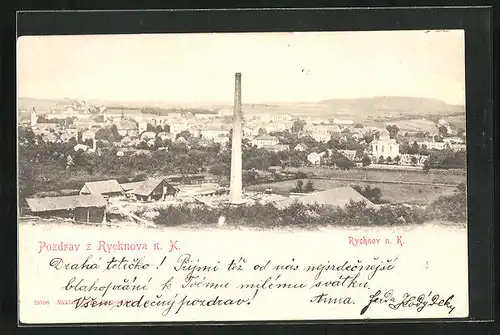 Pozdrav z Rycknova n. K.
Rychnov n. K.
Drahá tetičko! Přijmi též od nás nejsrdečnější
blahopřání k Tvému milému svátku.
Všem srdečný pozdrav. Anna
28706